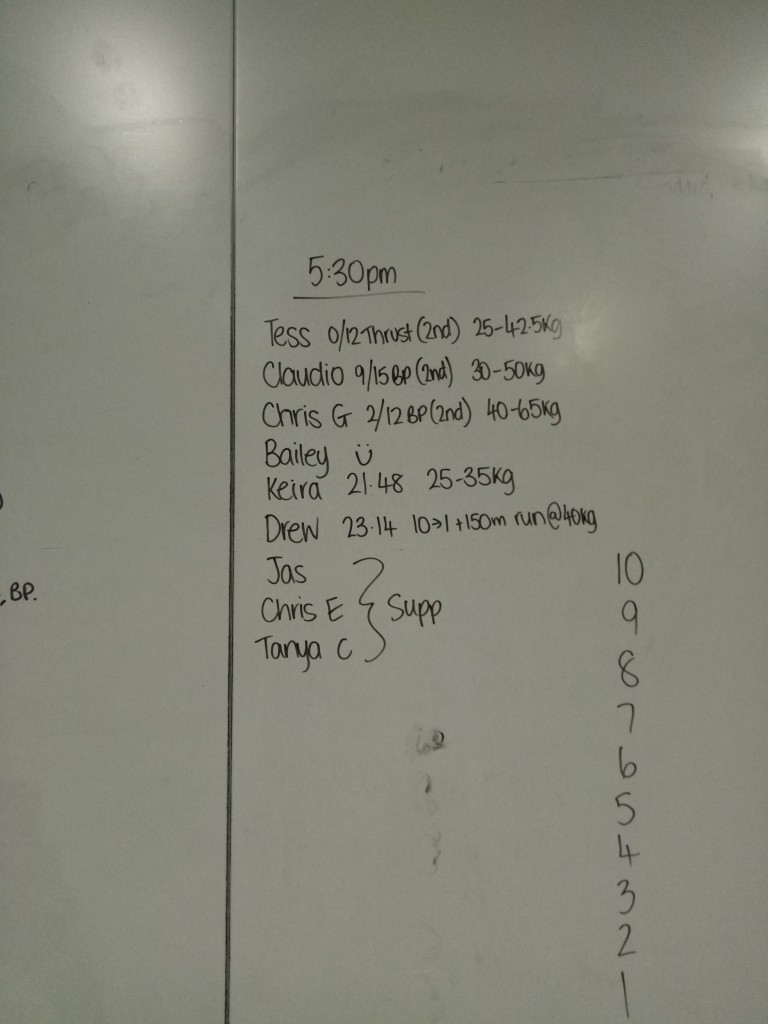 5:30pm
Tess 0/12 Thrust (2nd) 25-42.5kg
Claudio 9/15 BP (2nd) 30-50kg
Chris G 2/12 BP (2nd) 40-65kg
Bailey Ü
Keira 21.48 25-35kg
Drew 23.14 10→1 +150m run @40kg
Jas
Chris E } Supp
Tanya C
, BP.
10
9
8
7
6
5
4
3
2
1